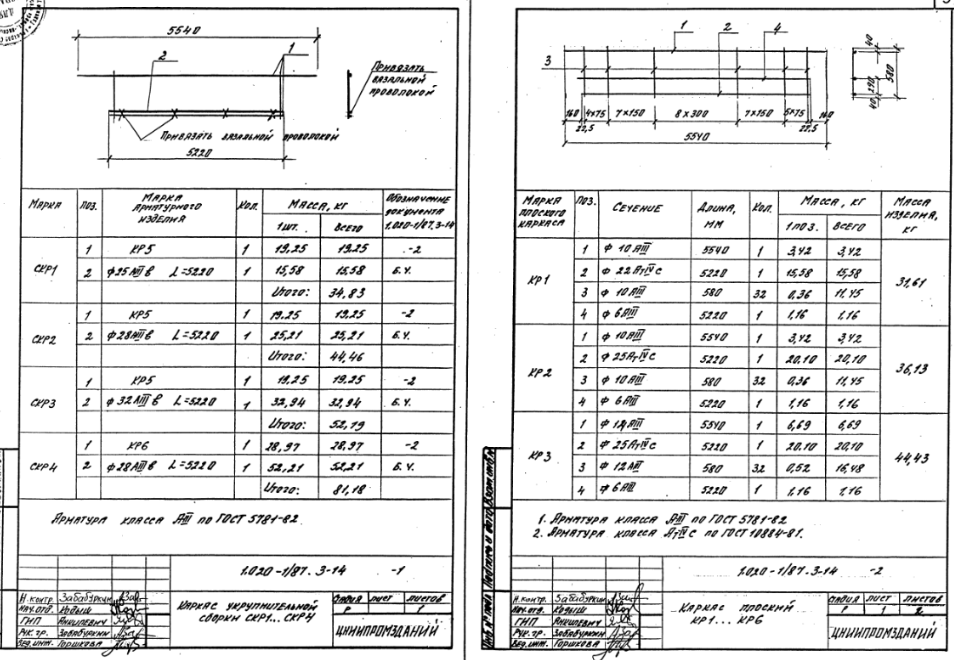 5540
2
1
Привязать
вязальной
проволокой
Привязать вязальной проволокой
5220
Марка
Поз.
Марка
арматурного
изделия
Кол.
Масса, кг
Обозначение
документа
1.020-1/87.3-14
1 шт.
Всего
СКР1
1 КР5 1 19,25 19,25 -2
2 ф25АIIIв L=5220 1 15,58 15,58 Б.Ч.
Итого: 34,83
СКР2
1 КР5 1 19,25 19,25 -2
2 ф28АIIIв L=5220 1 25,21 25,21 Б.Ч.
Итого: 44,46
СКР3
1 КР5 1 19,25 19,25 -2
2 ф32АIIIв L=5220 1 32,94 32,94 Б.Ч.
Итого: 52,19
СКР4
1 КР6 1 28,97 28,97 -2
2 ф28АIIIв L=5220 1 52,21 52,21 Б.Ч.
Итого: 81,18
Арматура класса АIII по ГОСТ 5781-82
1.020-1/87.3-14 -1
Н.контр. Забабуркин
Нач.отд. Кодыш
ГИП
Рук.гр. Забабуркин
Вед.инж. Горшкова
Каркас укрупнительной
сборки СКР1...СКР4
Стадия Лист Листов
Р 1
ЦНИИПРОМЗДАНИЙ
1 2 4
3
160 4х75 7х150 8х300 7х150 5х75 160
22,5 22,5
5540
40
580
290
40
Марка
плоского
каркаса
Поз.
Сечение
Длина,
мм
Кол.
Масса, кг
Масса
изделия,
кг
1 поз.
Всего
КР1
1 ф 10 АIII 5540 1 3,42 3,42
2 ф 22 АтIVс 5220 1 15,58 15,58
3 ф 10 АIII 580 32 0,36 11,45
4 ф 6 АIII 5220 1 1,16 1,16
31,61
КР2
1 ф 10 АIII 5540 1 3,42 3,42
2 ф 25АтIVс 5220 1 20,10 20,10
3 ф 10 АIII 580 32 0,36 11,45
4 ф 6 АIII 5220 1 1,16 1,16
36,13
КР3
1 ф 14 АIII 5540 1 6,69 6,69
2 ф 25АтIVс 5220 1 20,10 20,10
3 ф 12 АIII 580 32 0,52 16,48
4 ф 6 АIII 5220 1 1,16 1,16
44,43
1. Арматура класса АIII по ГОСТ 5781-82
2. Арматура класса АтIVс по ГОСТ 10884-81.
1.020-1/87.3-14 -2
Н.контр. Забабуркин
Нач.отд. Кодыш
ГИП
Рук.гр. Забабуркин
Вед.инж. Горшкова
Каркас плоский
КР1...КР6
Стадия Лист Листов
Р 1 2
ЦНИИПРОМЗДАНИЙ